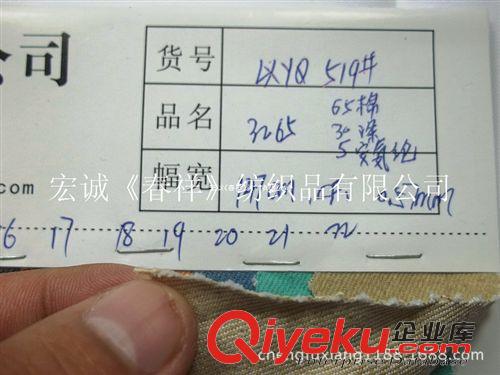 公司
货号 LXYQ 519#
65棉
品名 3265 30涤
5安氨纶
幅宽
com
宏诚《春祥》纺织品有限公司
16 17 18 19 20 21 22
Qiyeku.com 企业库
chengfuxiang1188.1688.com